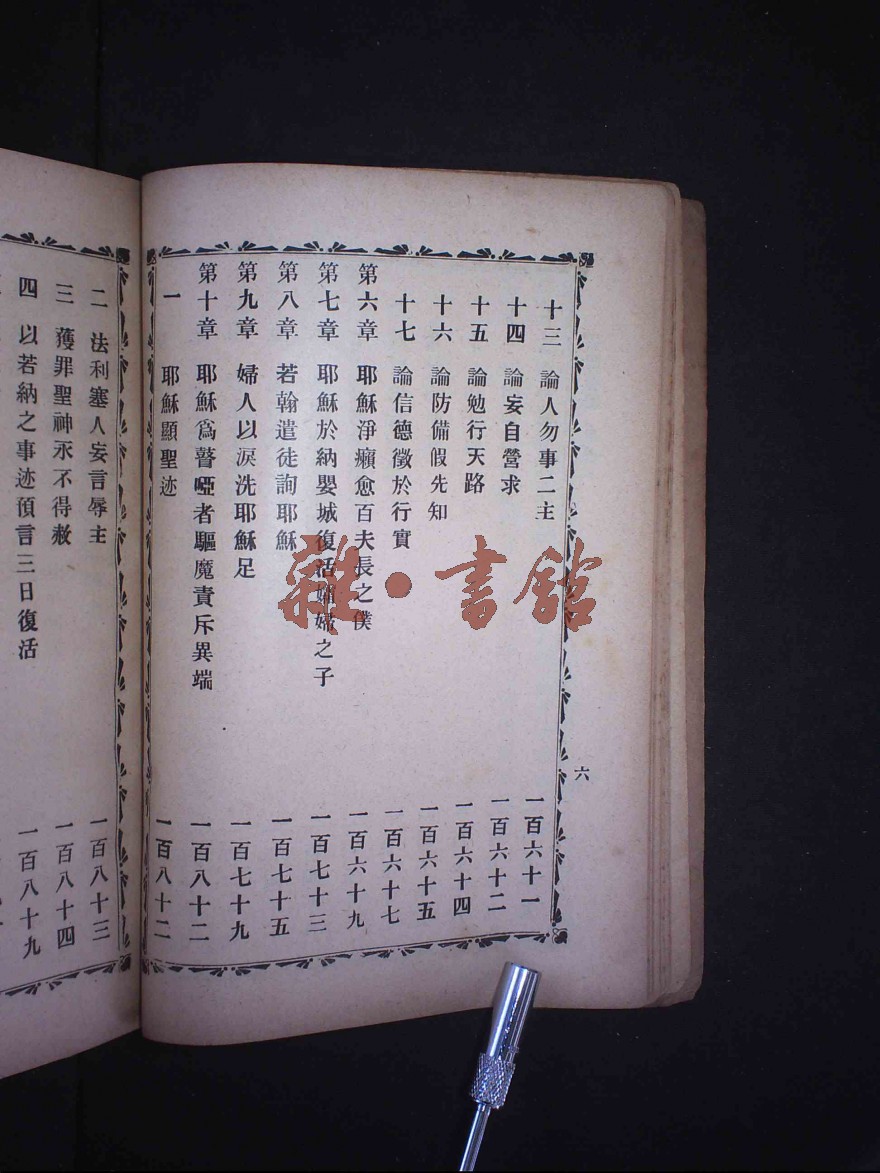 十三 論人勿事二主 一百六十一
十四 論妄自營求 一百六十二
十五 論勉行天路 一百六十四
十六 論防備假先知 一百六十五
十七 論信德徵於行實 一百六十七
第六章 耶穌淨癩愈百夫長之僕 一百六十九
第七章 耶穌於納嬰城復活孀婦之子 一百七十三
第八章 若翰遣徒詢耶穌 一百七十五
第九章 婦人以淚洗耶穌足 一百七十九
第十章 耶穌爲瞽啞者驅魔責斥異端 一百八十二
一 耶穌顯聖迹 一百八十二
六
二 法利塞人妄言辱主 一百八十三
三 獲罪聖神永不得赦 一百八十四
四 以若納之事迹預言三日復活 一百八十九
雜·書館